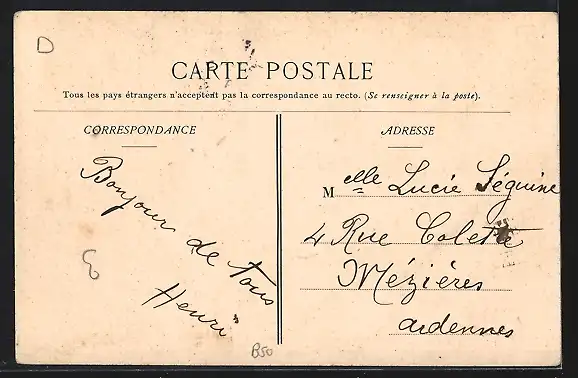 D
CARTE POSTALE
Tous les pays étrangers n'acceptent pas la correspondance au recto. (Se renseigner à la poste).
CORRESPONDANCE
Bonjour de tous
Henri
B50
ADRESSE
Melle Lucie Séguine
4 Rue Colette
Mézières
ardennes